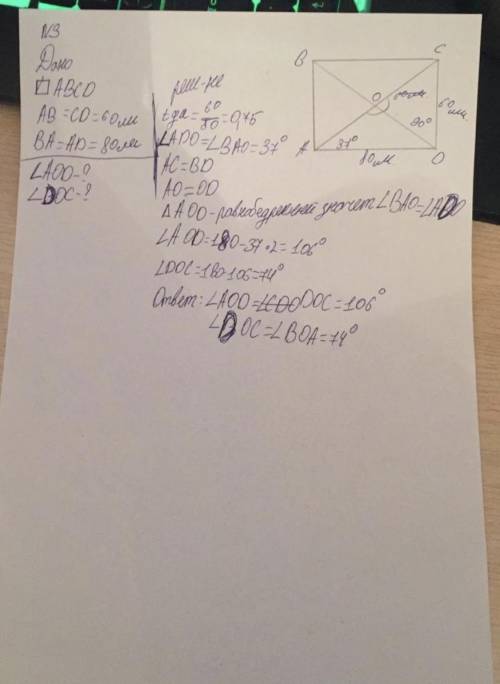 N3
Дано
□ ABCD
AB = CD = 60 мм
BA = AD = 80 мм
∠AOD - ?
∠DOC - ?
реше-ие
tgα = 60/80 = 0,75
∠ADO = ∠BAO = 37°
AC = BD
AO = OD
△AOD - равнобедренный значет ∠BAO = ∠ADO
∠AOD = 180 - 37 · 2 = 106°
∠DOC = 180 - 106 = 74°
Ответ: ∠AOD = DOC = 106°
∠DOC = ∠BOA = 74°
B
C
O
60 мм
90°
A
37°
80 мм
D